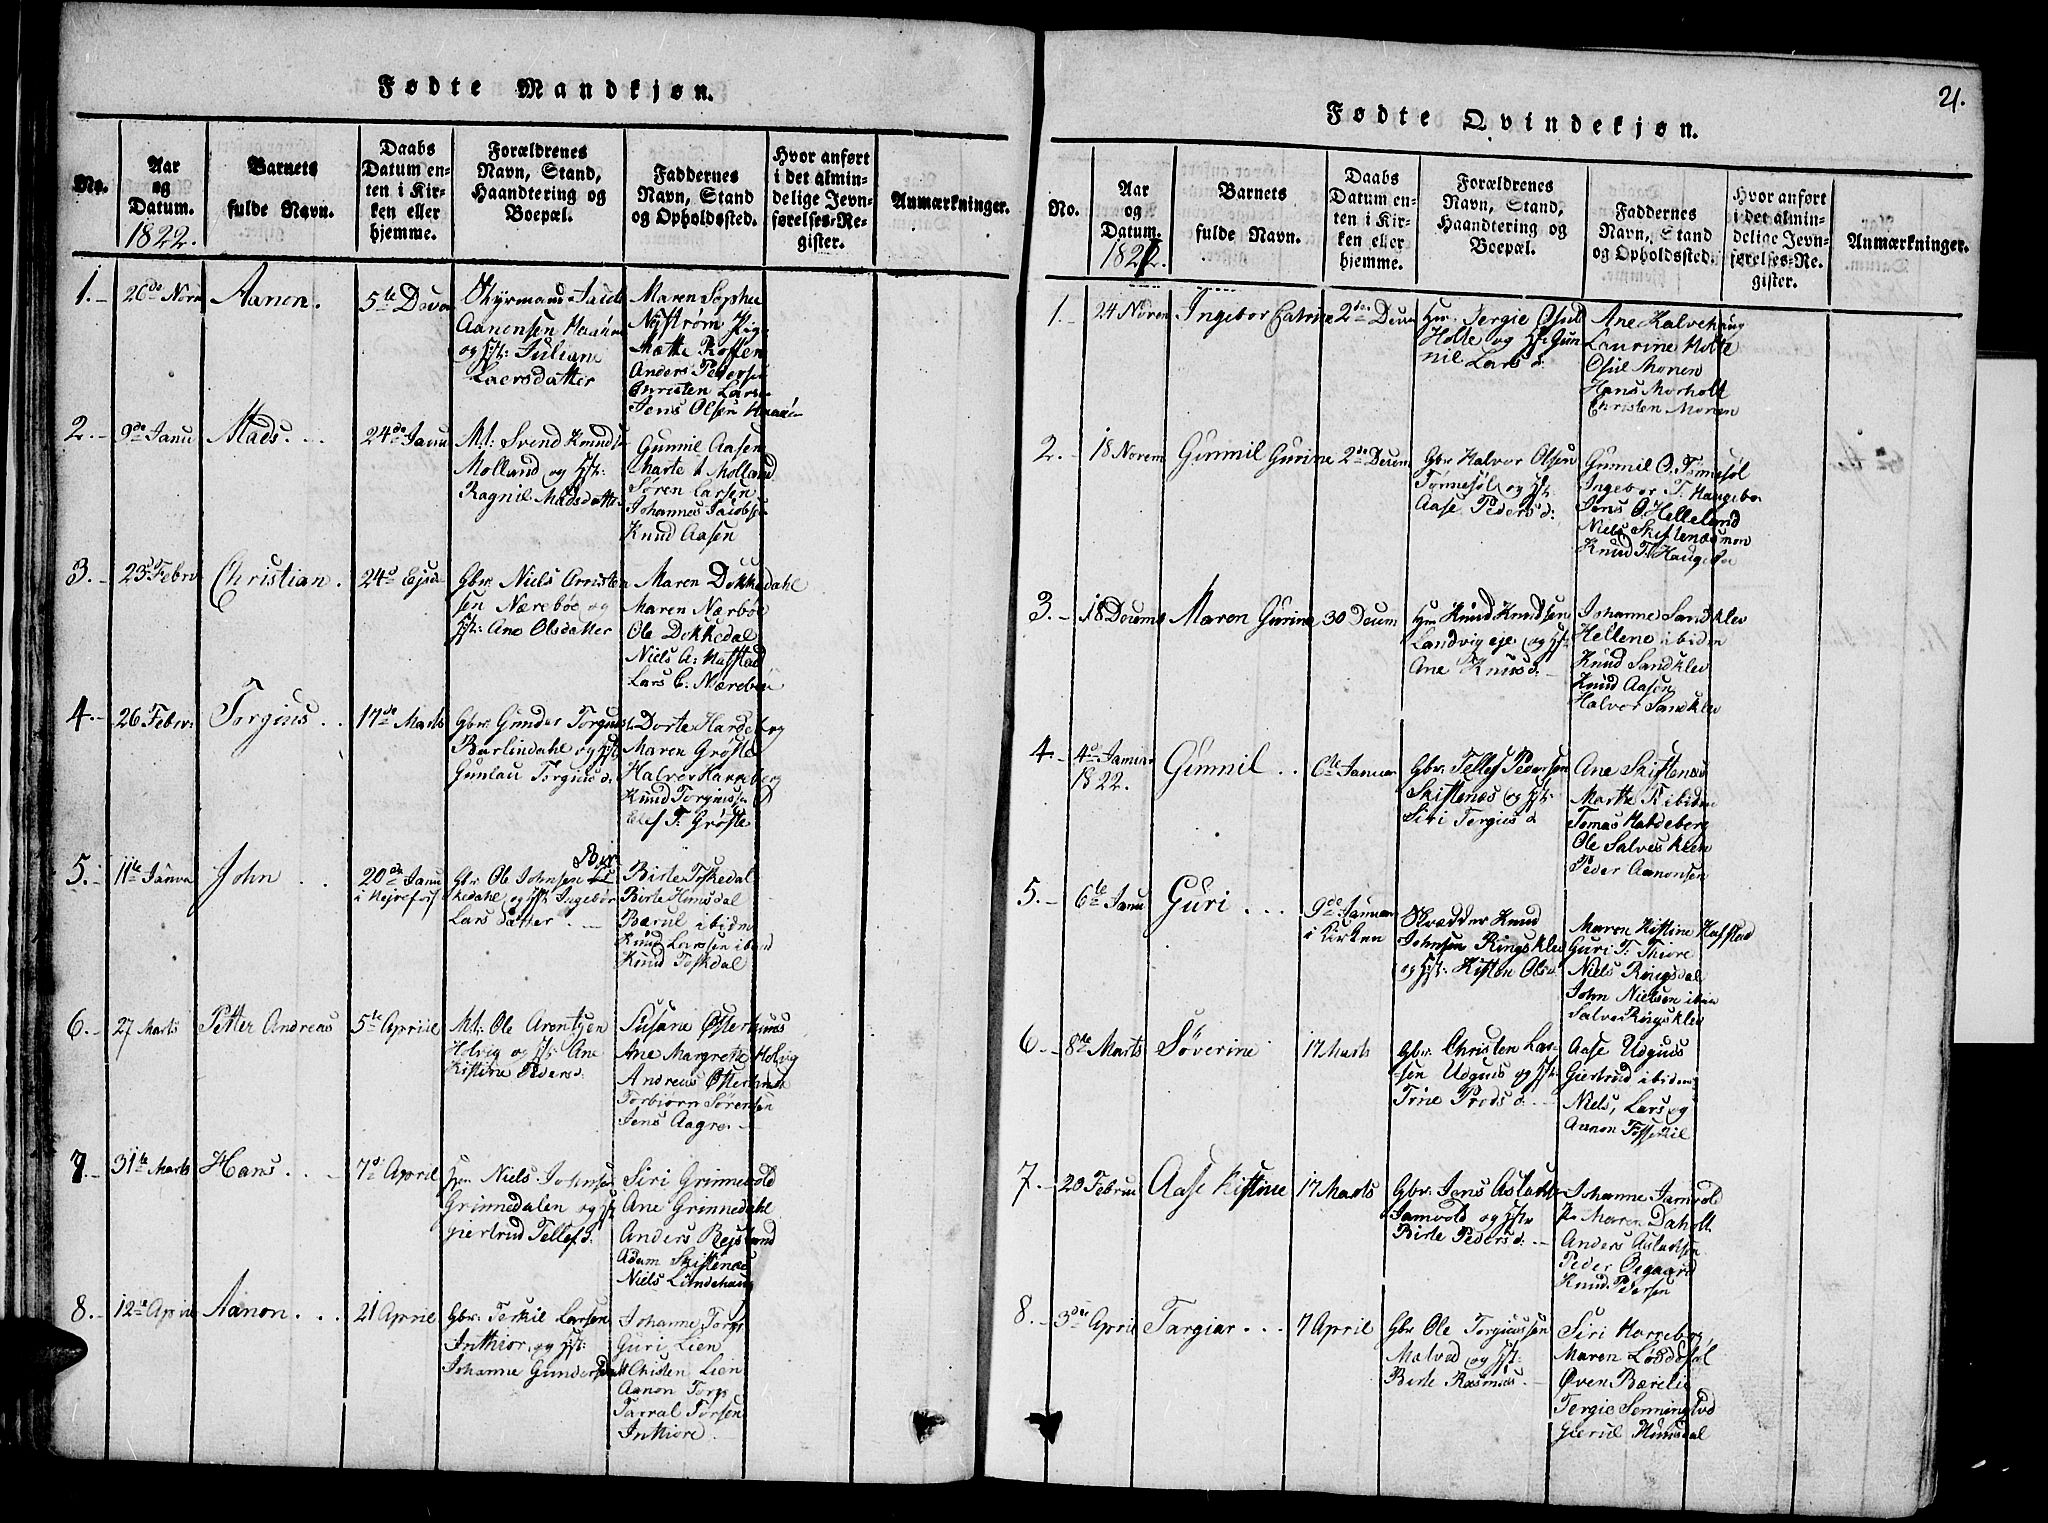 Fødte Mandkjøn.
No.
Aar
og
Datum.
1822.
Barnets
fulde Navn.
Daabs
Datum en-
ten i Kir-
ken eller
hjemme.
Forældrenes
Navn, Stand,
Haandtering og
Boepæl.
Faddernes
Navn, Stand
og Opholdssted.
Hvor anført
i det almin-
delige Jevn-
førelses-Re-
gister.
Anmærkninger.
1.
Aanen.
Styrmand
Aanensen
og Juliane
Laersdatter
Maren Sophie
Nystrøm Pig
Mætte
Anders Peders
Christen Lars
Jens Olsen
2.
9de Janu
Mads.
24de Janu
Mt: Svend Knuds
Molland og Hst:
Ragnil Madsdatter
Gunnil Aasen
Marte Molland
Søren Larsen
Johannes Jacobsen
Knud Aasen
3.
23 Febru
Christian.
24d Ejusd
Gbr. Niels
sen Nærebøe og
Hst: Ane Olsdatter
Maren Dokkedahl
Maren Nærbøe
Ole Dokkedal
Niels A: Hafstad
Lars C: Nærebøe
4.
26 Febr:
Torgius.
17de Marts
Gbr. Gunder Torgius
Barlindahl og Hst
Gunlau Torgius d.
Dorte Hardeberg
Maren Grøsle
Halvor Harreberg
Knud Torgiussen
Olef T: Grøsle
5.
11te Janua
John
20de Janu
i Hejrefos
Gbr Ole Johnsen
kedahl og Hst Ingebor
Lars datter.
Birte Toskedal
Birte Himsdal
Bærul ibidm
Knud Larssen ibid
Knud Toskdal
6.
27 Marts
Petter Andreas
5te Apriil
Mt: Ole Arentzen
Holvig og Hst: Ane
Kistine Peders d.
Susane Østerhuus
Ane Margrete Holvig
Andreas Østerhuus
Torbiørn Sørensen
Jens Aagre
7.
31te Marts
Hans.
7d April
Hm Niels Johnsen
Grinnedalen og Hst
Giertrud Tellefs d.
Siri Grinnevold
Ane Grinnedahl
Anders Rejsland
Adam Skiftenæs
Niels Lundehaug
8.
12te April
Aanon.
21 April
Gbr. Terkil Larsen
Inthior, og Hst:
Johanne Gunders
Johanne Torp
Guri Lien
Christen Lien
Aanon Torp
Tarral Torsen
Inthiore.
21.
Fødte Qvindekjøn.
No.
Aar
og
Datum.
Barnets
fulde Navn.
Daabs
Datum en-
ten i Kir-
ken eller
hjemme.
Forældrenes
Navn, Stand,
Haandtering og
Boepæl.
Faddernes
Navn, Stand
og Opholdssted.
Hvor anført
i det almin-
delige Jevn-
førelses-Re-
gister.
Anmærkninger.
1.
24 Novem
Ingebor Catrine
2den Decem
Hm: Tergie Osul
Holte og Hst: Gun
nil Lars d.
Ane Kalvehaug
Laurine Holte
Osul Monen
Hans Morholt
Christen Moren
2.
18 Novem
Gunnil Gurine
2de Decem
Gbr Halvor Olsen
Tønnesøl og Hst:
Aase Peders d:
Gunnil O. Tønnesøl
Ingebor T. Haugebo
Jens O. Helleland
Niels Skiftenæs
Knud T. Haugeboe
3.
18 Decemb
Maren Gurine
30 Decem
Hm Knud Knudsen
Landvig eje og Hst
Ane Knuds d.
Johanne Sandklev
Hellene ibidm
Knud Sandklev
Knud Aasen
Halvor Sandklev
4.
4de Januar
1822.
Gunnil
6te Januar
Gbr. Tellef Pedersen
Skiftenæs og Hst:
Siri Torgius d.
Ane Skiftenæs
Marthe ibidm
Tomas Hardeberg
Ole Salves Klev
Peder Aanonsen
5.
6te Janu
Guri
9de Januar
i Kirken
Skrædder Knud
Johnsen Ringsklev
og Hst: Kisten Ols d.
Maren Kistine Hafstad
Guri T. Thiore
Niels Ringsdal
John Nielsen ibid
Salve Ringsklev
6.
8de Marts
Søverine
17 Marts
Gbr. Christen Lar-
sen Udgius og Hst:
Trine d.
Aase Udgius
Giertrud ibidm
Niels, Lars og
Aanon Tøssekil
7.
20 Februa
Aase Kistine
17 Marts
Gbr. Jens Aslachs
Jamvold og Hst
Birte Peders d:
Johanne Jamvold
Maren Daholt
Anders Aslachsen
Peder Øegaard
Knud Pedersen
8.
3die April
Targiar
7 April
Gbr Ole Torgiussen
Malvad og Hst:
Birte Rasmus
Siri Harreberg,
Maren Løddesøl
Øven Bærelie
Tergie
Gierul Himsdal